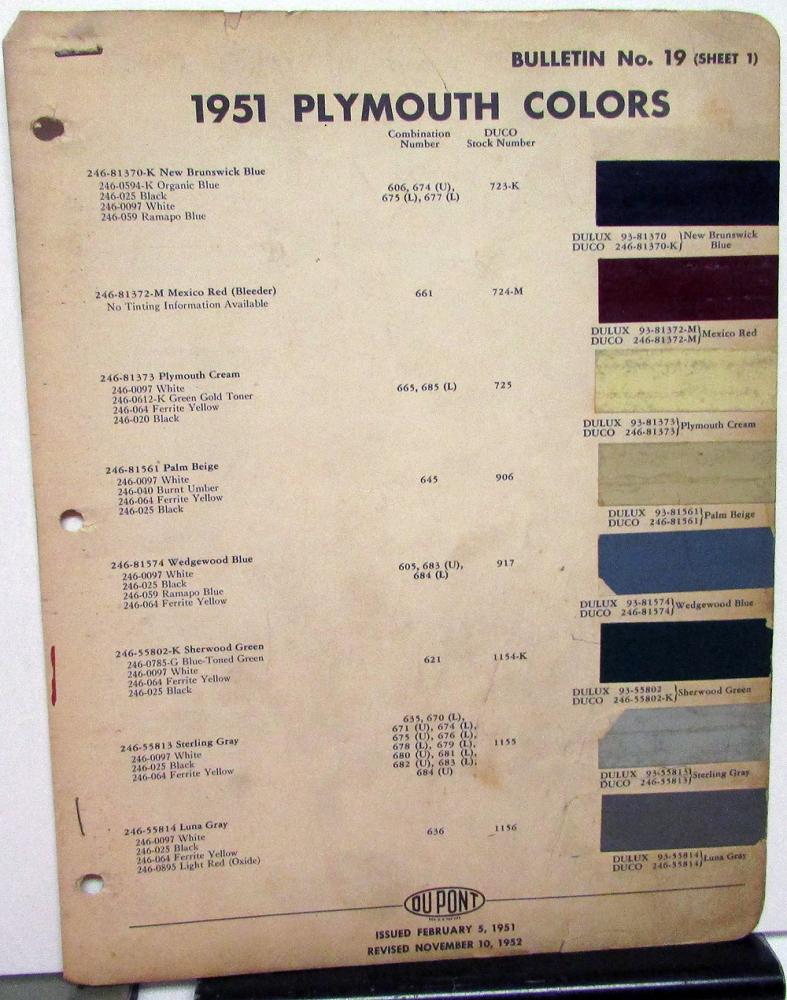 BULLETIN No. 19 (SHEET 1)
1951 PLYMOUTH COLORS
Combination Number
DUCO Stock Number
246-81370-K New Brunswick Blue
246-0594-K Organic Blue
246-025 Black
246-0097 White
246-059 Ramapo Blue
606, 674 (U),
675 (L), 677 (L)
723-K
DULUX 93-81370
DUCO 246-81370-K
New Brunswick
Blue
246-81372-M Mexico Red (Bleeder)
No Tinting Information Available
661
724-M
DULUX 93-81372-M
DUCO 246-81372-M
Mexico Red
246-81373 Plymouth Cream
246-0097 White
246-0612-K Green Gold Toner
246-064 Ferrite Yellow
246-020 Black
665, 685 (L)
725
DULUX 93-81373
DUCO 246-81373
Plymouth Cream
246-81561 Palm Beige
246-0097 White
246-040 Burnt Umber
246-064 Ferrite Yellow
246-025 Black
645
906
DULUX 93-81561
DUCO 246-81561
Palm Beige
246-81574 Wedgewood Blue
246-0097 White
246-025 Black
246-059 Ramapo Blue
246-064 Ferrite Yellow
605, 683 (U),
684 (L)
917
DULUX 93-81574
DUCO 246-81574
Wedgewood Blue
246-55802-K Sherwood Green
246-0785-G Blue-Toned Green
246-0097 White
246-064 Ferrite Yellow
246-025 Black
621
1154-K
DULUX 93-55802
DUCO 246-55802-K
Sherwood Green
246-55813 Sterling Gray
246-0097 White
246-025 Black
246-064 Ferrite Yellow
635, 670 (L),
671 (U), 674 (L),
675 (U), 676 (L),
678 (L), 679 (L),
680 (U), 681 (L),
682 (U), 683 (L),
684 (U)
1155
DULUX 93-55813
DUCO 246-55813
Sterling Gray
246-55814 Luna Gray
246-0097 White
246-025 Black
246-064 Ferrite Yellow
246-0895 Light Red (Oxide)
636
1156
DULUX 93-55814
DUCO 246-55814
Luna Gray
DU PONT
ISSUED FEBRUARY 5, 1951
REVISED NOVEMBER 10, 1952